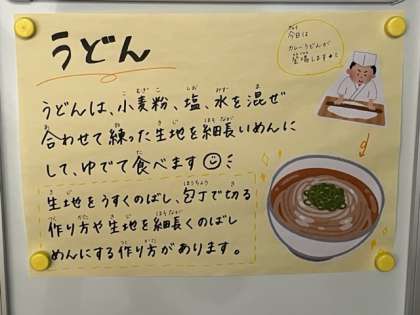 うどん
今日は
カレーうどんが
登場します
うどんは、小麦粉、塩、水を混ぜ
合わせて練った生地を細長いめんに
して、ゆでて食べます
生地をうすくのばし、包丁で切る
作り方や生地を細長くのばし
めんにする作り方があります。